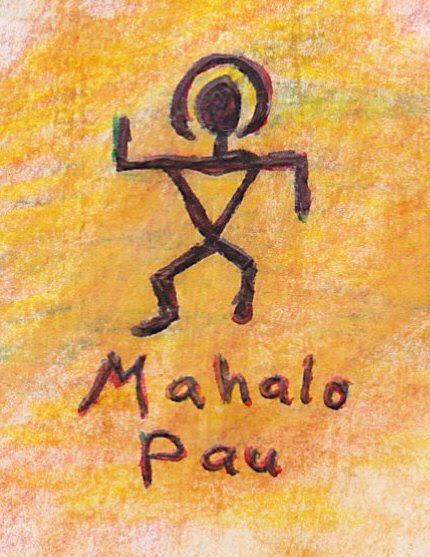 Mahalo
Pau